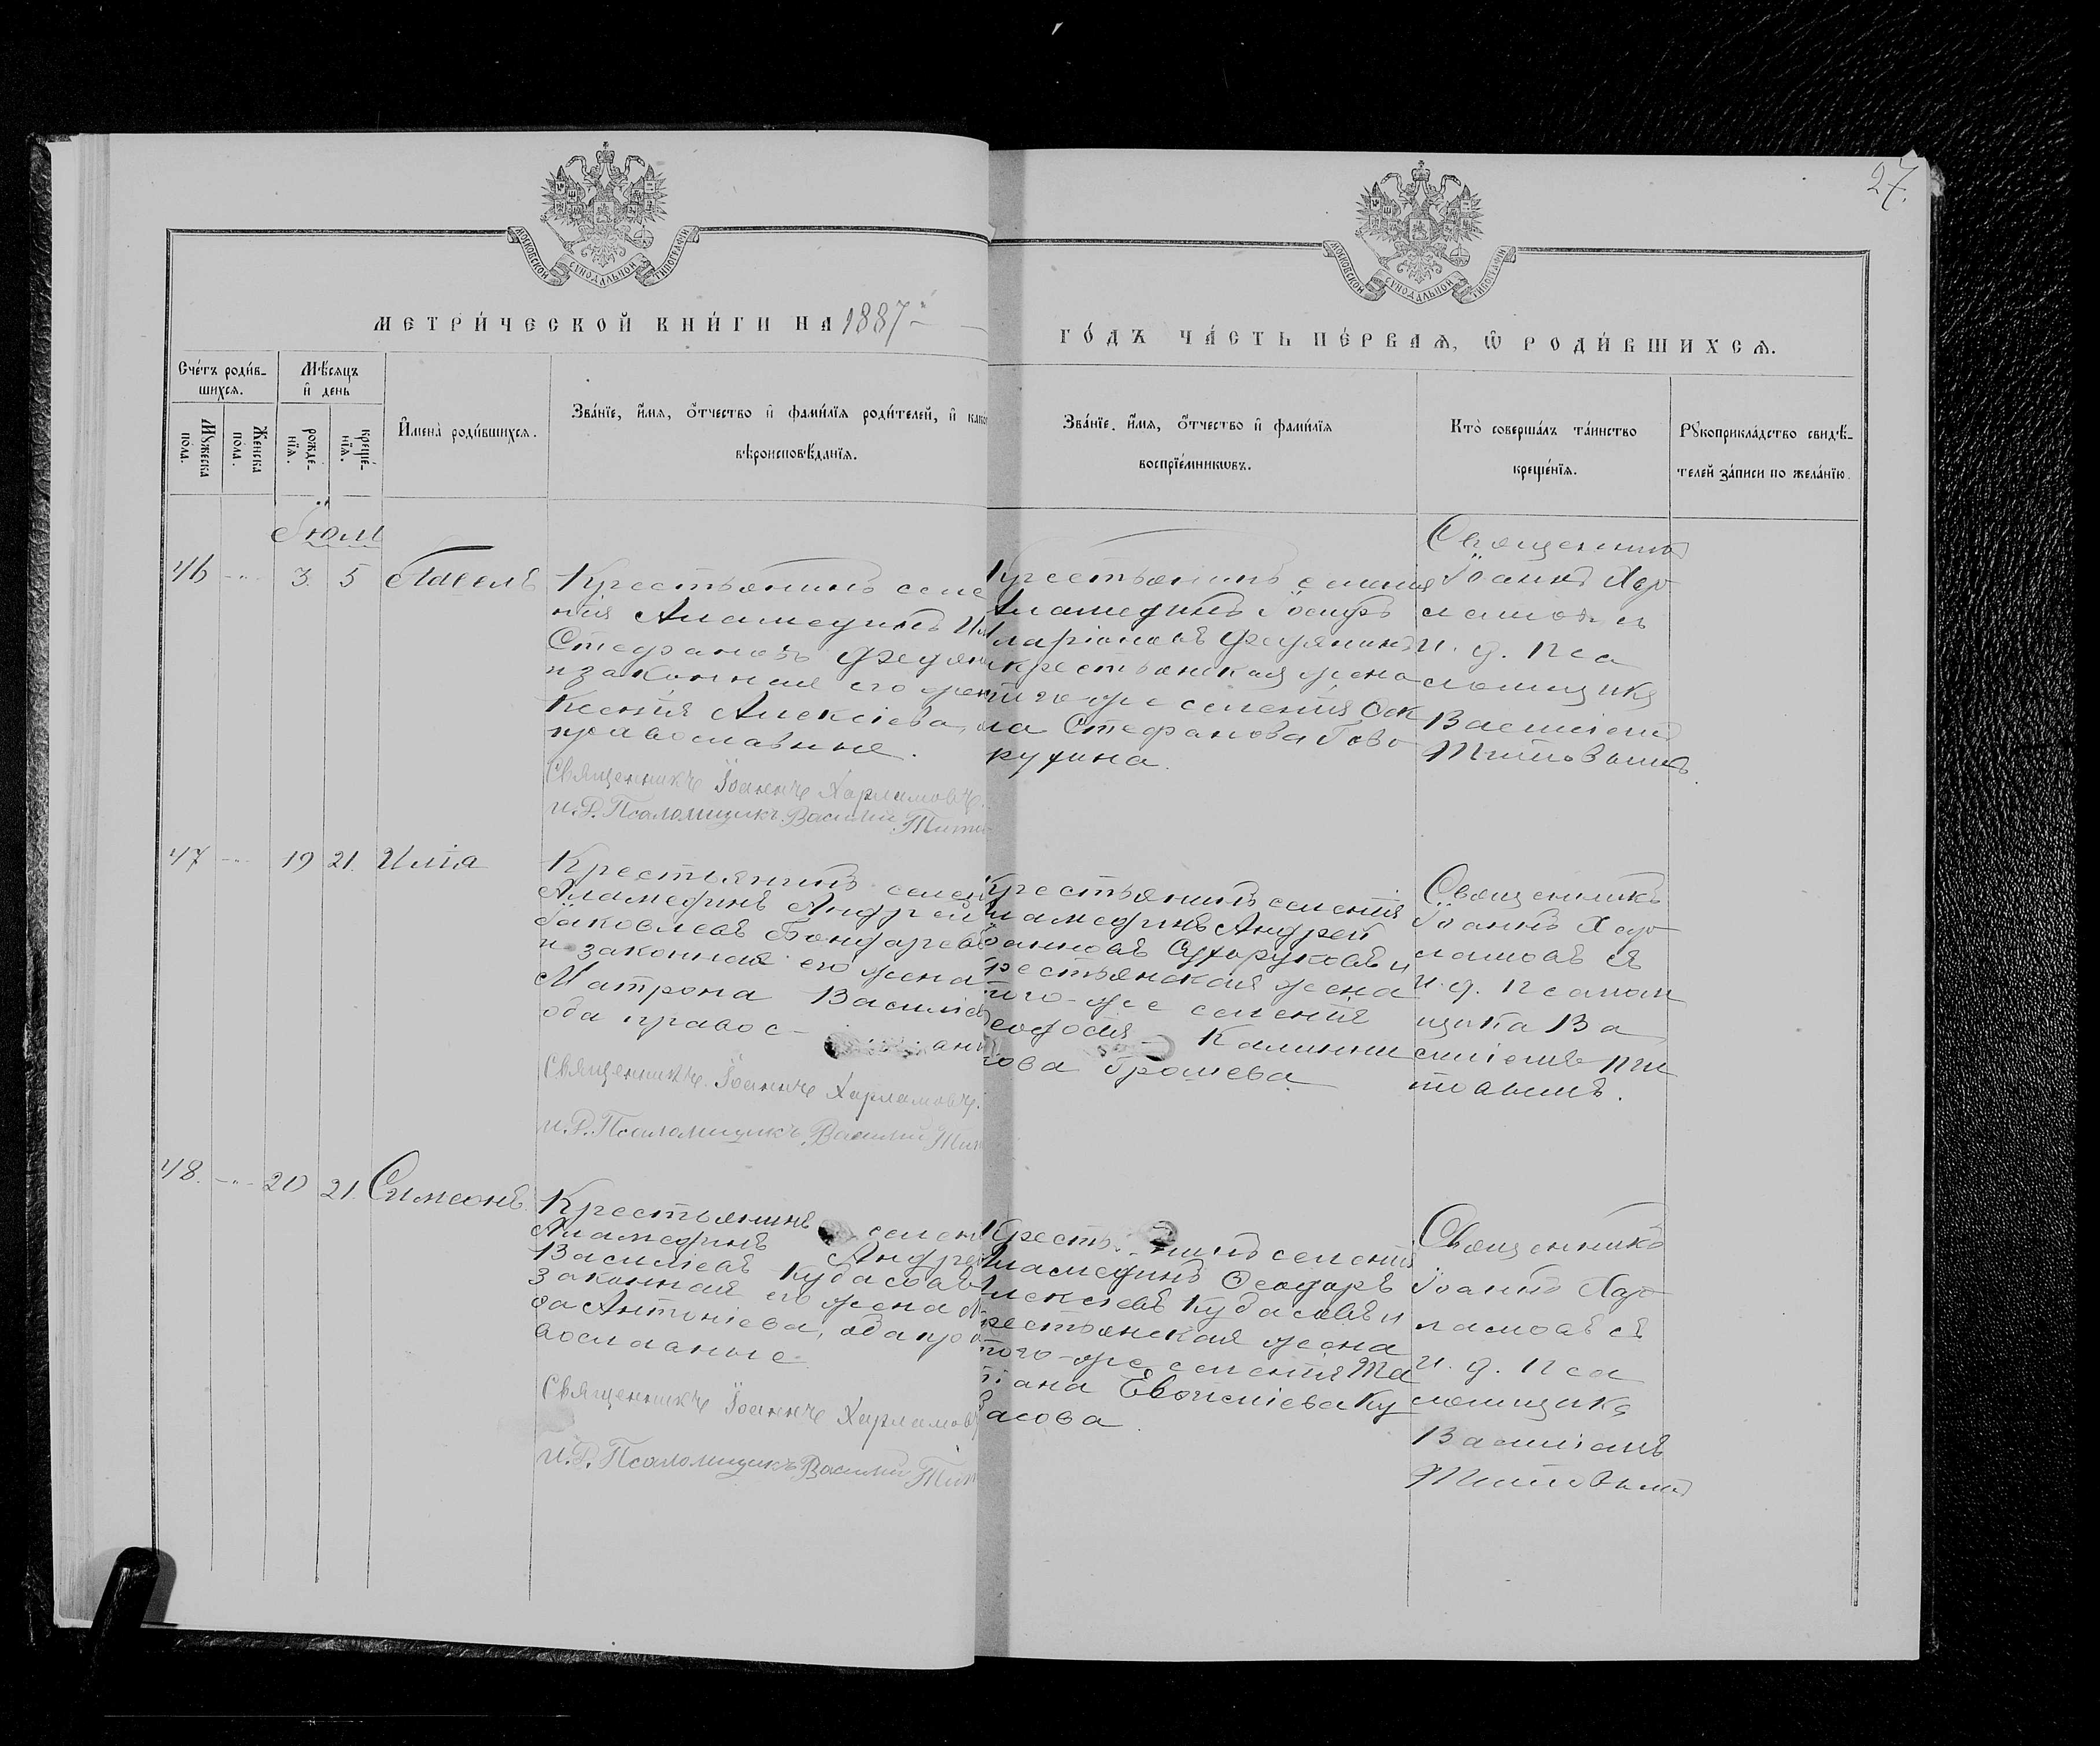 27.
МОСКОВСКОЙ СѴНОДАЛЬНОЙ ТИПОГРАФІИ
МОСКОВСКОЙ СѴНОДАЛЬНОЙ ТИПОГРАФІИ
МЕТРИ́ЧЕСКОЙ КНИ́ГИ НА 1887
ГО́ДЪ ЧА́СТЬ ПЕ́РВАѦ, Ѡ РОДИ́ВШИХСѦ.
Сче́тъ роди́в-
шихсѧ.
Мꙋжеска
по́ла.
Женска
по́ла.
Мѣ́сѧцъ
и҆ день
рожде́-
нїѧ.
креще́-
нїѧ.
И҆мена̀ роди́вшихсѧ.
Зва́нїе, и҆́мѧ, о҆́тчество и҆ фами́лїѧ роди́телей, и҆ како
вѣроисповѣ́данїѧ.
Зва́нїе, и҆́мѧ, о҆́тчество и҆ фами́лїѧ
воспрїе́мникѡвъ.
Кто̀ соверша́лъ та́инство
креще́нїѧ.
Рꙋкоприкла́дство свидѣ́-
телей за́писи по жела́нїю.
Іюль
46 - 3. 5 Павелъ
Крестьянинъ селе
нія Аламединъ Ил
Стефановъ Федян
и законная его жен
Ксенія Алексіева, о
православные.
Священникъ Іоаннъ Харламовъ.
и. д. Псаломщикъ Василій Тито
Крестьянинъ селенія
Аламединъ Іосифъ
Иларіоновъ Федянинъ и
крестьянская жена
того-же селенія Фек
ла Стефанова Гово
рухина.
Священникъ
Іоаннъ Хар
ламовъ съ
и. д. Пса
ломщика
Василіемъ
Титовымъ.
47 - 19 21. Илія
Крестьянинъ селен
Аламединъ Андрей
Іаковлевъ Бондаревъ
и законная его жена
Матрона Василіев
оба правос-
Священникъ Іоаннъ Харламовъ.
и. д. Псаломщикъ Василій Тит
Крестьянинъ селенія
Аламединъ Андрей
Іоанновъ Сухоруковъ и
крестьянская жена
того-же селенія
Феодосія - Калинни
кова
Священникъ
Іоаннъ Хар
ламовъ съ
и. д. Псалом
щика Ва
силіемъ Ти
товымъ.
48. - 20 21. Симеонъ.
Крестьянинъ селен
Аламединъ Андрей
Василіевъ Кубасовъ
законная его жена
Антоніева, оба пра
вославные
Священникъ Іоаннъ Харламовъ
и. д. Псаломщикъ Василій Тит
Крестьянинъ селенія
Аламединъ Феодоръ
Алексіевъ Кубасовъ и
крестьянская жена
того-же селенія Та
тіана Евфиміева Ку
басова.
Священникъ
Іоаннъ Хар
ламовъ съ
и. д. Пса
ломщика
Василіемъ
Титовымъ